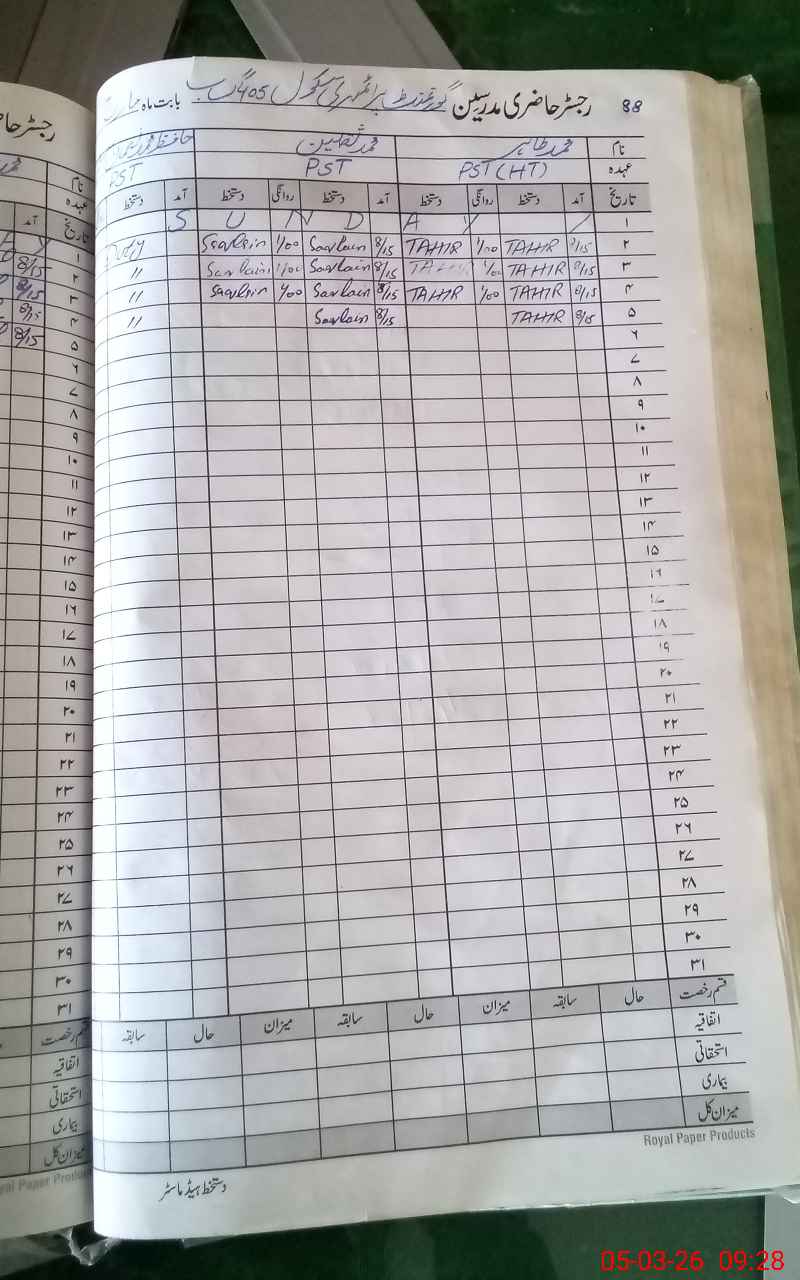 88 رجسٹر حاضری مدرسین گورنمنٹ پرائمری سکول 405 گ ب بابت ماہ مارچ
نام محمد طاہر محمد ثقلین حافظ محمد
عہدہ PST (HT) PST PST
تاریخ آمد دستخط روانگی دستخط آمد دستخط روانگی دستخط آمد دستخط
۱ S U N D A Y
۲ 8/15 TAHIR 1/00 TAHIR 8/15 Saqlain 1/00 Saqlain
۳ 8/15 TAHIR 1/00 TAHIR 8/15 Saqlain 1/00 Saqlain "
۴ 8/15 TAHIR 1/00 TAHIR 8/15 Saqlain 1/00 Saqlain "
۵ 8/15 TAHIR 8/15 Saqlain "
۶
۷
۸
۹
۱۰
۱۱
۱۲
۱۳
۱۴
۱۵
۱۶
۱۷
۱۸
۱۹
۲۰
۲۱
۲۲
۲۳
۲۴
۲۵
۲۶
۲۷
۲۸
۲۹
۳۰
۳۱
قسم رخصت حال سابقہ میزان حال سابقہ میزان حال سابقہ
اتفاقیہ
استحقاقی
بیماری
میزان کل
Royal Paper Products
دستخط ہیڈ ماسٹر
رجسٹر حا
نام
عہدہ
تاریخ آمد
۱
۲ 8/15
۳ 8/15
۴ 8/15
۵ 8/15
۶
۷
۸
۹
۱۰
۱۱
۱۲
۱۳
۱۴
۱۵
۱۶
۱۷
۱۸
۱۹
۲۰
۲۱
۲۲
۲۳
۲۴
۲۵
۲۶
۲۷
۲۸
۲۹
۳۰
۳۱
قسم رخصت
اتفاقیہ
استحقاقی
بیماری
میزان کل
Paper Products
05-03-26 09:28